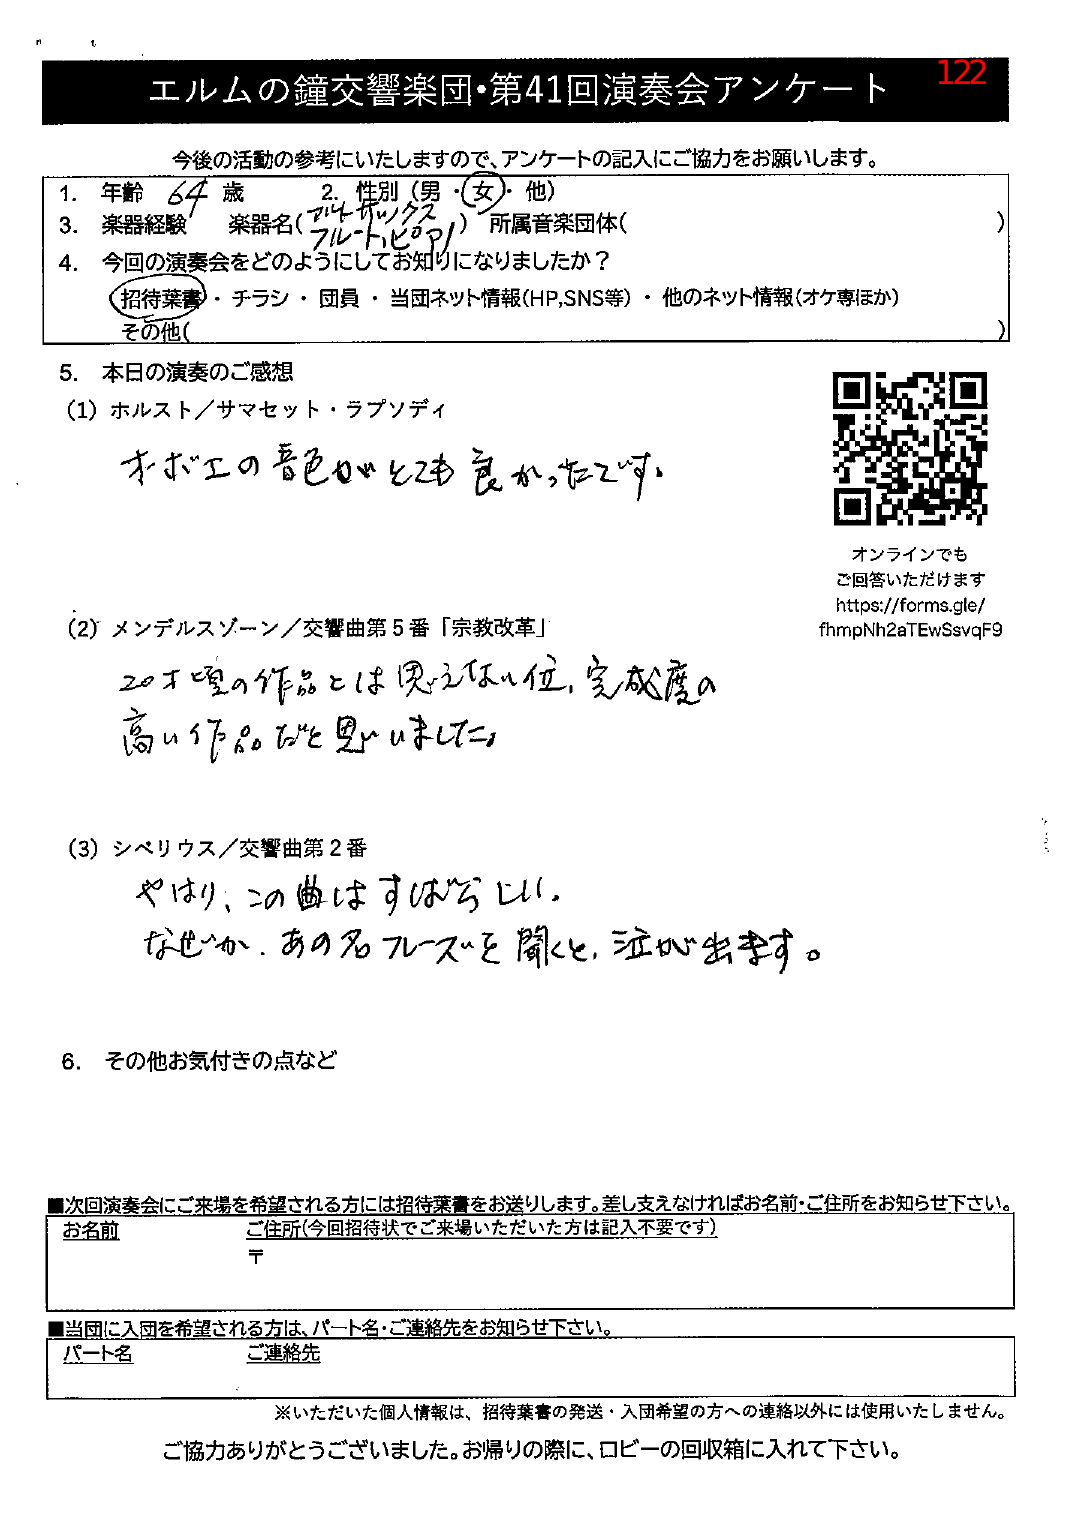 エルムの鐘交響楽団・第41回演奏会アンケート
122
今後の活動の参考にいたしますので、アンケートの記入にご協力をお願いします。
1. 年齢 64 歳 2. 性別（男・女・他）
3. 楽器経験 楽器名(アルトサックス フルート、ピアノ) 所属音楽団体( )
4. 今回の演奏会をどのようにしてお知りになりましたか？
招待葉書・チラシ・団員・当団ネット情報(HP,SNS等)・他のネット情報(オケ専ほか)
その他( )
5. 本日の演奏のご感想
（1）ホルスト／サマセット・ラプソディ
オーボエの音色がとても良かったです。
オンラインでも
ご回答いただけます
https://forms.gle/
fhmpNh2aTEwSsvqF9
（2）メンデルスゾーン／交響曲第５番「宗教改革」
20才頃の作品とは思えない位、完成度の
高い作品だと思いました。
（3）シベリウス／交響曲第２番
やはり、この曲はすばらしい。
なぜか、あの名フレーズを聞くと、泣が出ます。
6. その他お気付きの点など
■次回演奏会にご来場を希望される方には招待葉書をお送りします。差し支えなければお名前・ご住所をお知らせ下さい。
お名前 ご住所(今回招待状でご来場いただいた方は記入不要です)
〒
■当団に入団を希望される方は、パート名・ご連絡先をお知らせ下さい。
パート名 ご連絡先
※いただいた個人情報は、招待葉書の発送・入団希望の方への連絡以外には使用いたしません。
ご協力ありがとうございました。お帰りの際に、ロビーの回収箱に入れて下さい。